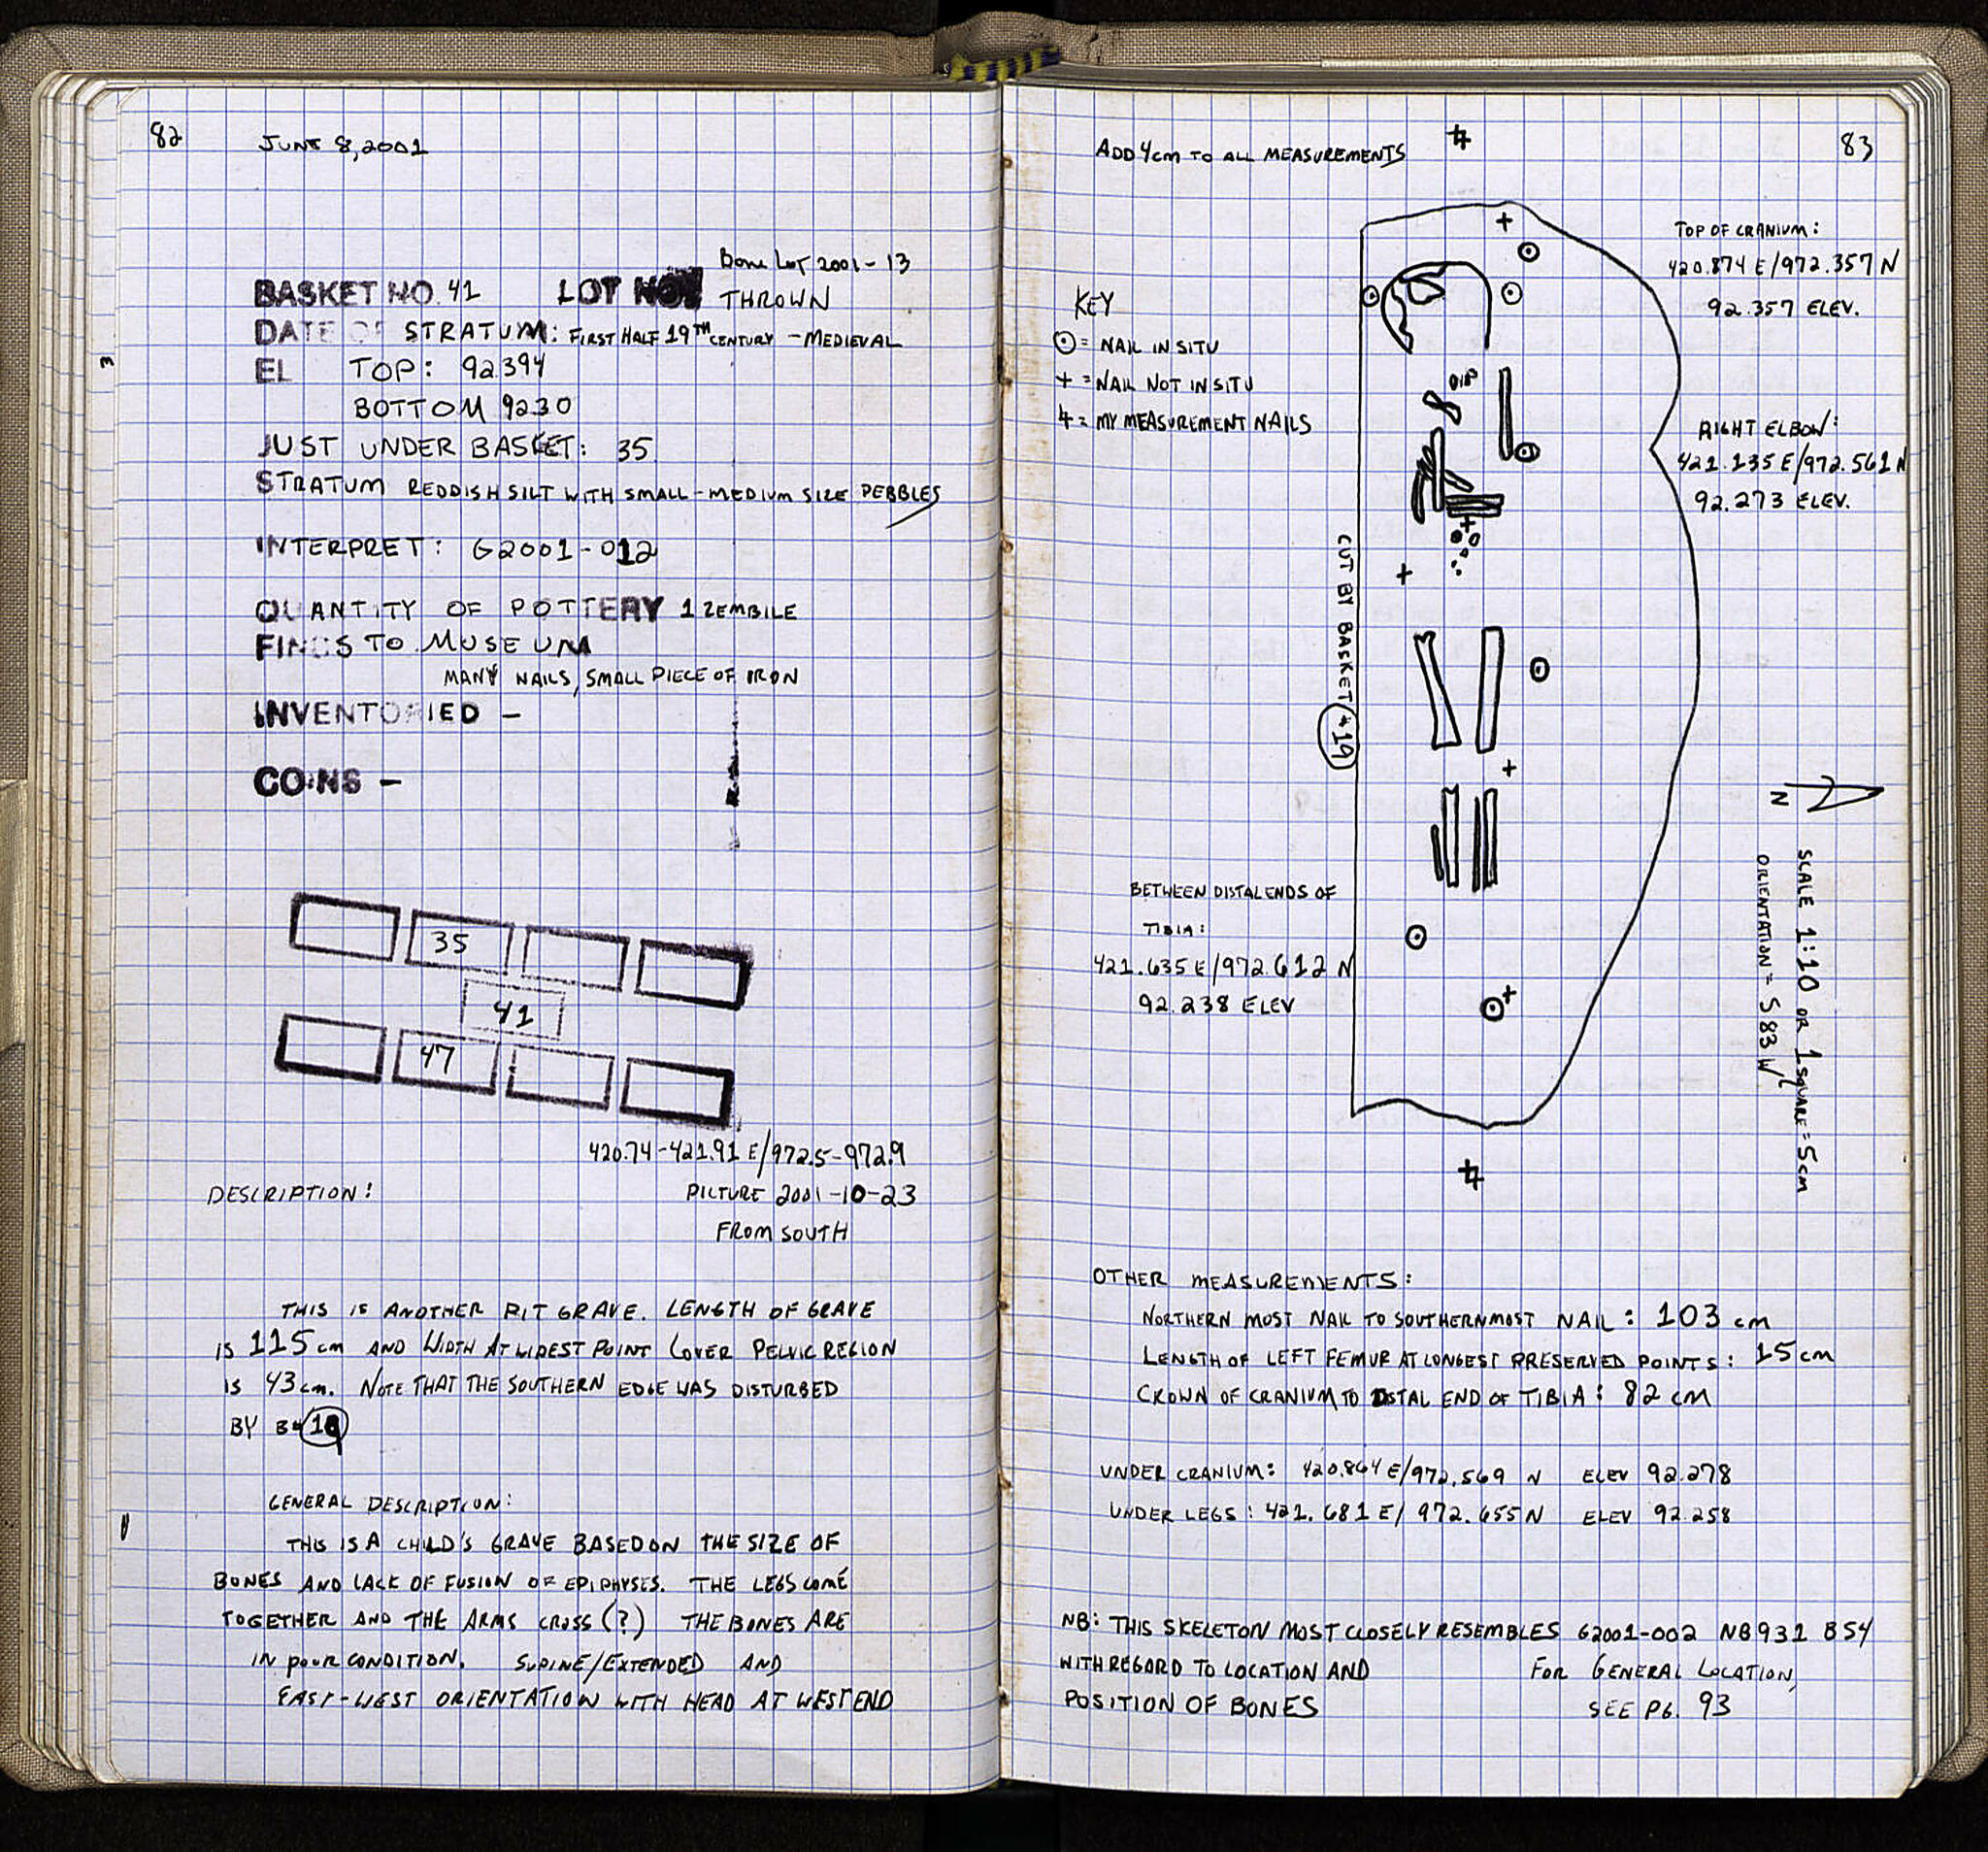 82
JUNE 8, 2001
BONE LOT 2001-13
BASKET NO. 41 LOT NO THROWN
DATE OF STRATUM: FIRST HALF 19TH CENTURY - MEDIEVAL
EL TOP: 92.394
BOTTOM 92.30
JUST UNDER BASKET: 35
STRATUM REDDISH SILT WITH SMALL-MEDIUM SIZE PEBBLES
INTERPRET: G2001-012
QUANTITY OF POTTERY 1 ZEMBILE
FINDS TO MUSEUM
MANY NAILS, SMALL PIECE OF IRON
INVENTORIED -
COINS -
35
41
47
420.74-421.91 E/972.5-972.9
DESCRIPTION: PICTURE 2001-10-23
FROM SOUTH
THIS IS ANOTHER PIT GRAVE. LENGTH OF GRAVE
IS 115 cm AND WIDTH AT WIDEST POINT (OVER PELVIC REGION
IS 43 cm. NOTE THAT THE SOUTHERN EDGE WAS DISTURBED
BY B# 19
GENERAL DESCRIPTION:
THIS IS A CHILD'S GRAVE BASED ON THE SIZE OF
BONES AND LACK OF FUSION OF EPIPHYSES. THE LEGS COME
TOGETHER AND THE ARMS CROSS (?) THE BONES ARE
IN POUR CONDITION. SUPINE/EXTENDED AND
EAST-WEST ORIENTATION WITH HEAD AT WEST END
83
ADD 4cm TO ALL MEASUREMENTS
TOP OF CRANIUM:
420.874 E/972.357 N
92.357 ELEV.
KEY
⊙ = NAIL IN SITU
+ = NAIL NOT IN SITU
= MY MEASUREMENT NAILS
RIGHT ELBOW:
421.135 E/972.561 N
92.273 ELEV.
CUT BY BASKET #19
N
SCALE 1:10 OR 1 SQUARE = 5cm
ORIENTATION = S 83 W
BETWEEN DISTAL ENDS OF
TIBIA:
421.635 E/972.612 N
92.238 ELEV
OTHER MEASUREMENTS:
NORTHERN MOST NAIL TO SOUTHERNMOST NAIL: 103 cm
LENGTH OF LEFT FEMUR AT LONGEST PRESERVED POINTS: 15 cm
CROWN OF CRANIUM TO DISTAL END OF TIBIA: 82 CM
UNDER CRANIUM: 420.864 E/972.569 N ELEV 92.278
UNDER LEGS: 421.681 E/ 972.655 N ELEV 92.258
NB: THIS SKELETON MOST CLOSELY RESEMBLES G2001-002 NB931 B54
WITH REGORD TO LOCATION AND
POSITION OF BONES
FOR GENERAL LOCATION,
SEE PG. 93